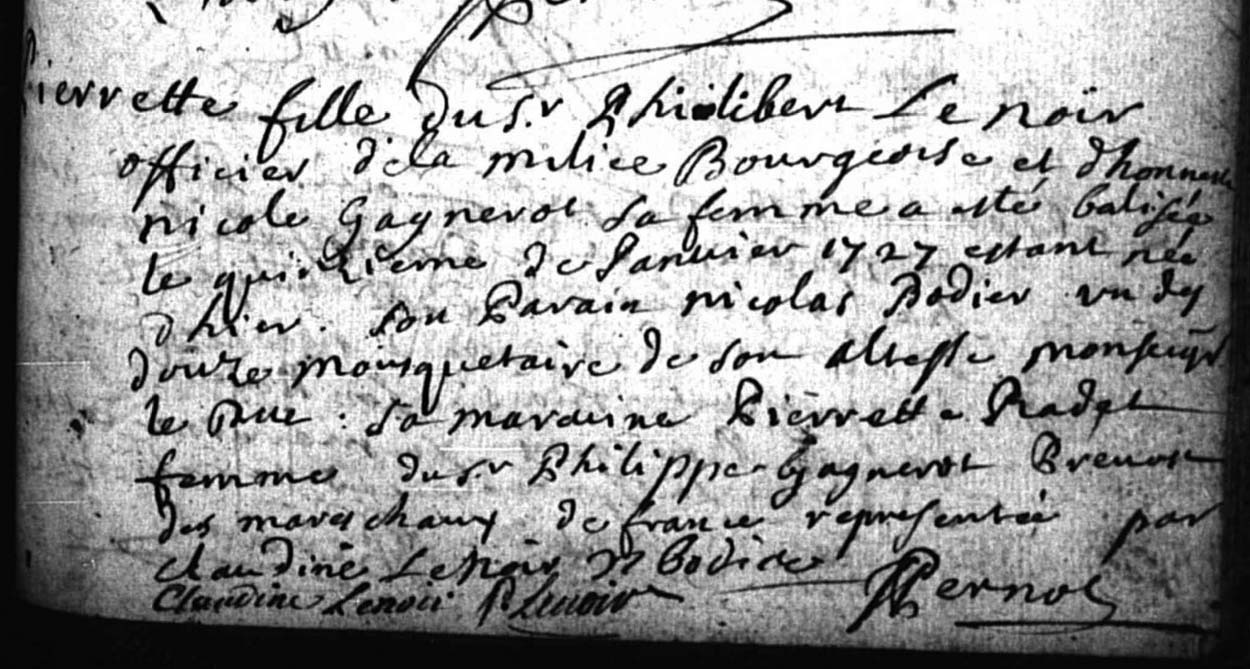 Pierrette fille du S.r Philibert Le noir
officier de la milice Bourgeoise et d'honneste
nicole Gagnerot sa femme a esté batisée
le quinzieme de Janvier 1727 estant née
d'hier. son Parain nicolas Bodier un des
douze mousquetaire de son altesse monseigr
le Duc : sa maraine Pierrette Radet
femme du Sr Philippe Gagnerot Prevost
des mareschaux de france representée par
claudine Le Noir N Bodier
Claudine Lenoir P Lenoir Pernot